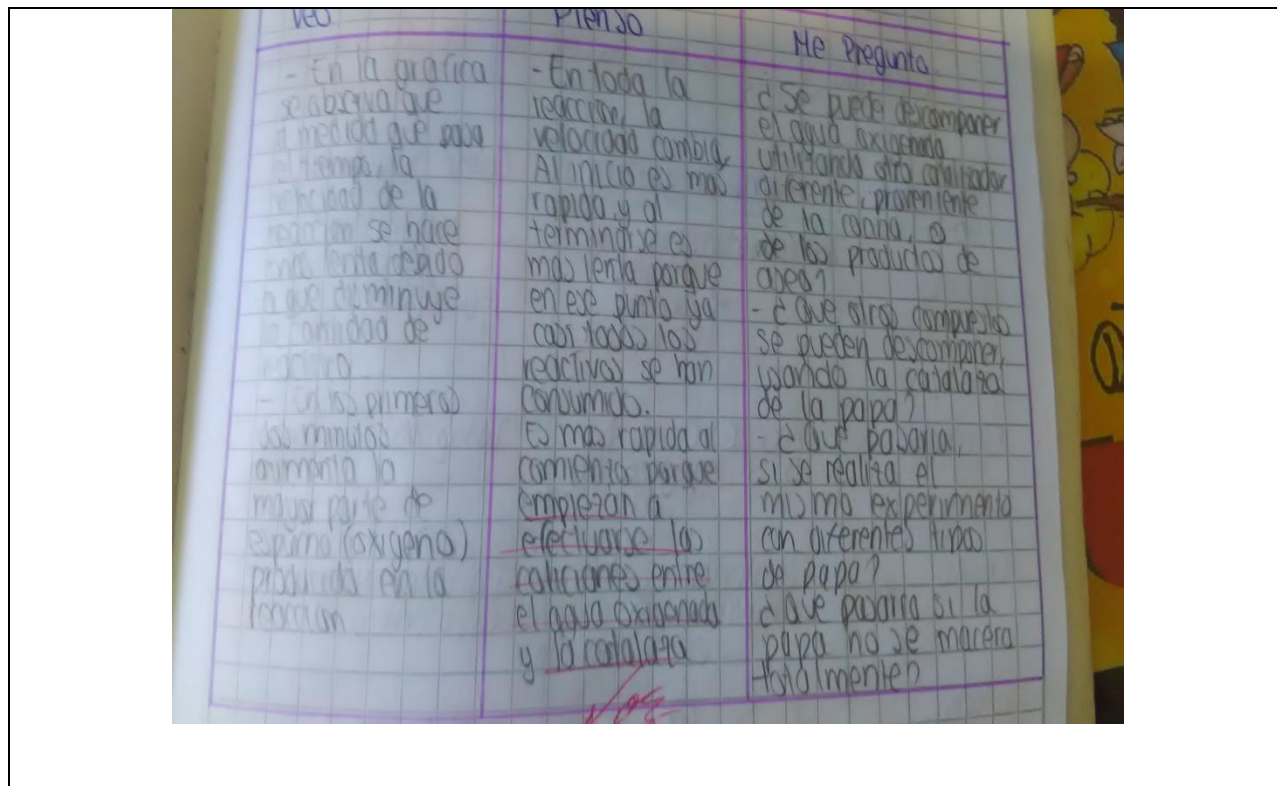 Veo
- En la grafica
se observa que
a medida que pasa
el tiempo, la
velocidad de la
reaccion se hace
mas lenta debido
a que disminuye
la cantidad de
reactivo
- En los primeros
dos minutos
aumenta la
mayor parte de
espuma (oxigeno)
producida en la
reaccion
Pienso
- En toda la
reaccion, la
velocidad cambia,
Al inicio es mas
rapida, y al
terminarse es
mas lenta porque
en ese punto ya
casi todos los
reactivos se han
consumido.
Es mas rapida al
comienzo porque
empiezan a
efectuarse las
coliciones entre
el agua oxigenada
y la catalaza
Me Pregunto
¿Se puede descomponer
el agua oxigenna
utilizando otro catalizador
diferente, proveniente
de la cocina, o
de los productos de
aseo?
- ¿Que otros compuestos
se pueden descomponer,
usando la catalaza
de la papa?
- ¿Que pasaria,
si se realiza el
mismo experimento
con diferentes tipos
de papa?
¿Que pasaria si la
papa no se macera
totalmente?